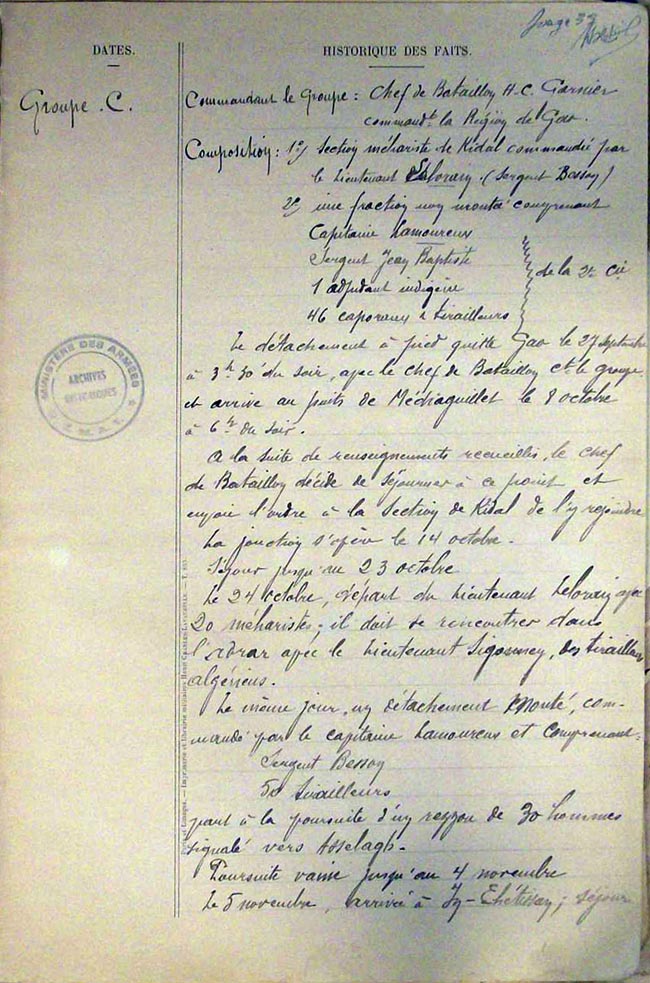 page 37
DATES.
HISTORIQUE DES FAITS.
Groupe. C.
Commandant le Groupe : Chef de Bataillon H.C. Garnier
commandt la Région de Gao.
Composition : 1º) Section méhariste de Kidal commandée par
le Lieutenant Lelorrain. (Sergent Besson)
2º) une fraction non montée comprenant
Capitaine Lamoureux
Sergent Jean Baptiste
1 adjudant indigène
46 caporaux & tirailleurs
de la 2e Cie
Le détachement à pied quitte Gao le 27 septembre
à 3h 30 du soir, avec le chef de Bataillon et le groupe
et arrive au puits de Médraguillet le 8 octobre
à 6h du soir.
A la suite de renseignements recueillis, le chef
de Bataillon décide de séjourner à ce point et
envoie l'ordre à la section de Kidal de l'y rejoindre
La jonction s'opère le 14 octobre.
Séjour jusqu'au 23 octobre
Le 24 octobre, départ du Lieutenant Lelorrain avec
20 méharistes ; il doit se rencontrer dans
l'adrar avec le Lieutenant Sigonney, des tirailleurs
algériens.
Le même jour, un détachement monté, com-
mandé par le capitaine Lamoureux et comprenant :
Sergent Besson
50 tirailleurs
part à la poursuite d'un rezzou de 30 hommes
signalé vers Asselagh.
Poursuite vaine jusqu'au 4 novembre
Le 5 novembre, arrivée à In-Ehétissan ; séjour
MINISTÈRE DES ARMÉES
ARCHIVES
HISTORIQUES